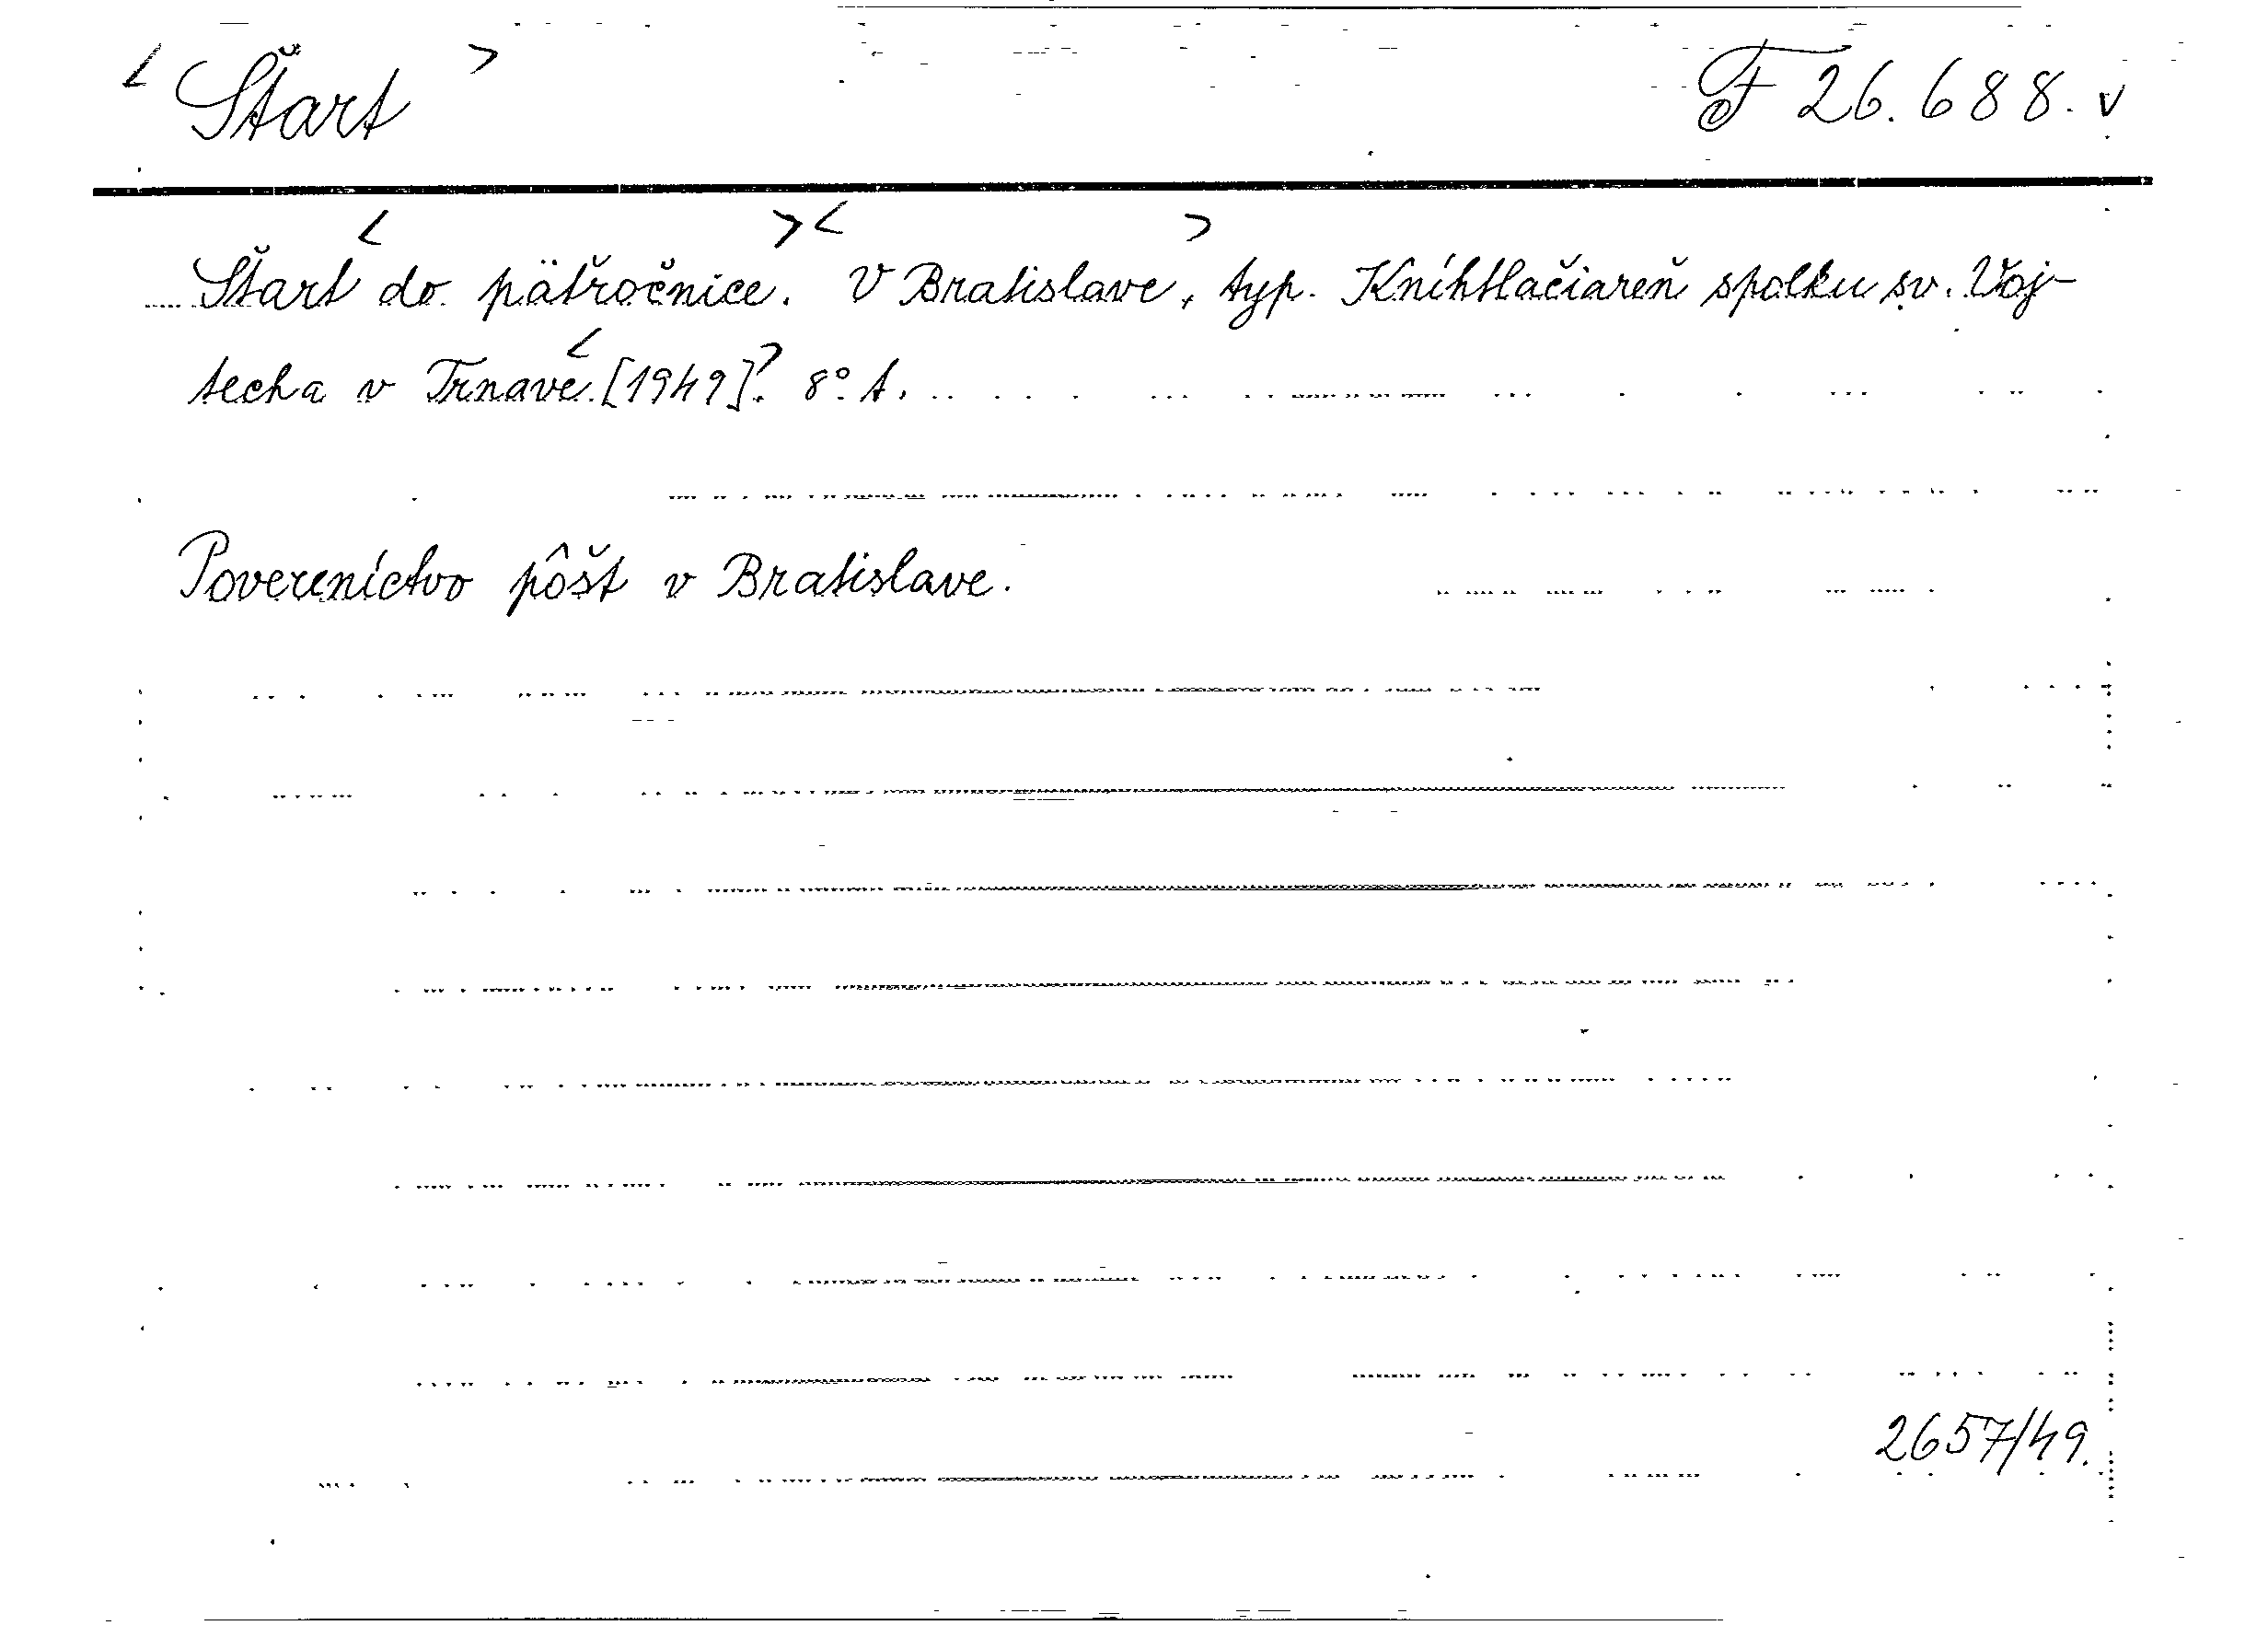 < Štart > F 26.688. v
Štart < do pätročnice. > < V Bratislave, > typ. Kníhtlačiareň spolku sv. Voj-
techa v Trnave. < [1949]. > 8° t.
Povereníctvo pôšt v Bratislave.
2657/49.